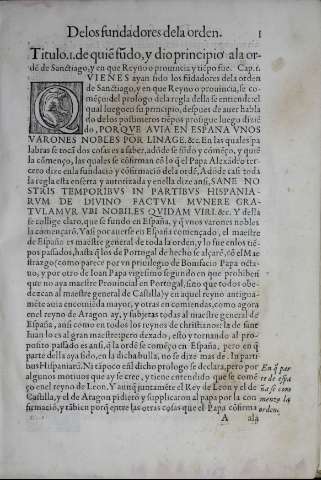 De los fundadores de la orden. 1
Titulo.1. de quiẽ fũdo, y dio principio a la or-
dẽ de Sanctiago, y en que Reyno o prouincia y tiẽpo fue. Cap. 1.
QVIENES ayan sido los fũdadores de la orden
de Sanctiago, y en que Reyno o prouincia, se co-
mẽço: del prologo de la regla della se entiende el
qual luego en su principio, despues de auer habla
do de los postrimeros tiẽpos prosigue luego diziẽ
do, PORQVE AVIA EN ESPAÑA VNOS
VARONES NOBLES POR LINAGE, &c. En las quales pa
labras se tocã dos cosas es a saber, adõde se fũdo y comẽço, y quiẽ
la començo, las quales se cõfirman cõ lo q̃ el Papa Alexãdro ter-
cero dize en la fundacio y cõfirmacio de la ordẽ, Adõde casi toda
la regla esta enserta y autorizada y en ella dize ansi, SANE NO
STRIS TEMPORIBVS IN PARTIBVS HISPANIA-
RVM DE DIVINO FACTVM MVNERE GRA-
TVLAMVR VBI NOBILES QVIDAM VIRI. &c. Y desta
se collige claro, que se fundo en España, y q̃ vnos varones nobles
la començarõ. Y asi por auerse en España começado, el maestre
de España es maestre general de toda la orden, y lo fue en los tiẽ-
pos passados, hasta q̃ los de Portogal de hecho se alçarõ, cõ el Ma
estrazgo (como parece por vn priuilegio de Bonifacio Papa octa-
uo, y por otro de Ioan Papa vigesimo segundo en que prohiben
que no aya maestre Prouincial en Portogal, sino que todos obe-
dezcan al maestre general de Castilla) y en aquel reyno antigua-
mẽte auia encomiẽda mayor, y otras encomiendas, como agora
en el reyno de Aragon ay, y subjetas todas al maestre general de
España, ansi como en todos los reynos de christianos: la de sant
Iuan lo es al gran maestre: pero dexado, esto y tornando al pro-
posito passado es ansi, q̃ la ordẽ se comẽço en España, pero en q̃
parte della aya sido, en la dicha bulla, no se dize mas de. In parti
bus Hispaniarũ. Ni tãpoco en el dicho prologo se declara, pero por
algunos motiuos que ay se cree, y tiene entendido que se comẽ-
ço en el reyno de Leon. Y aunq̃ juntamẽte el Rey de Leon y el de
Castilla, y el de Aragon pidierõ y supplicaron al papa por la con
firmació, y tãbien porq̃ entre las otras cosas que el Papa cõfirma
En q̃ par
te de espa
ña se co
menço la
orden.
A ala